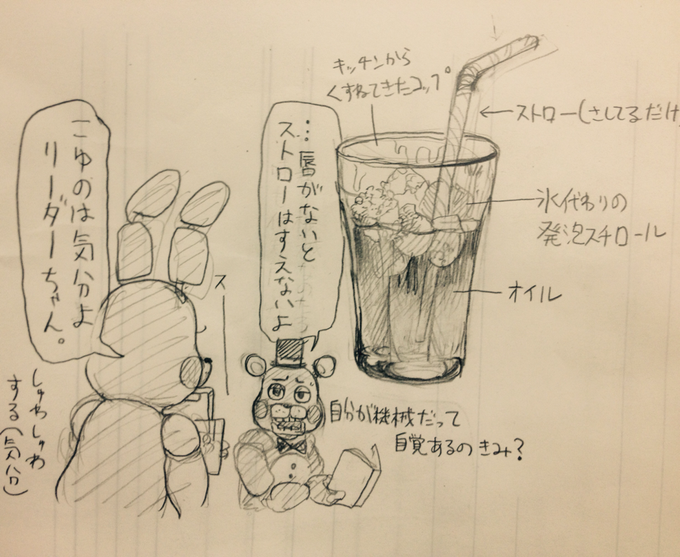 キッチンから
くすねてきたコップ
ストロー(さしてるだけ
氷代わりの
発泡スチロール
オイル
…唇がないと
ストローはすえないよ
こゆのは気分よ
リーダーちゃん。
スー
自分が機械だって
自覚あるの きみ?
しゅわしゅわ
する(気分)